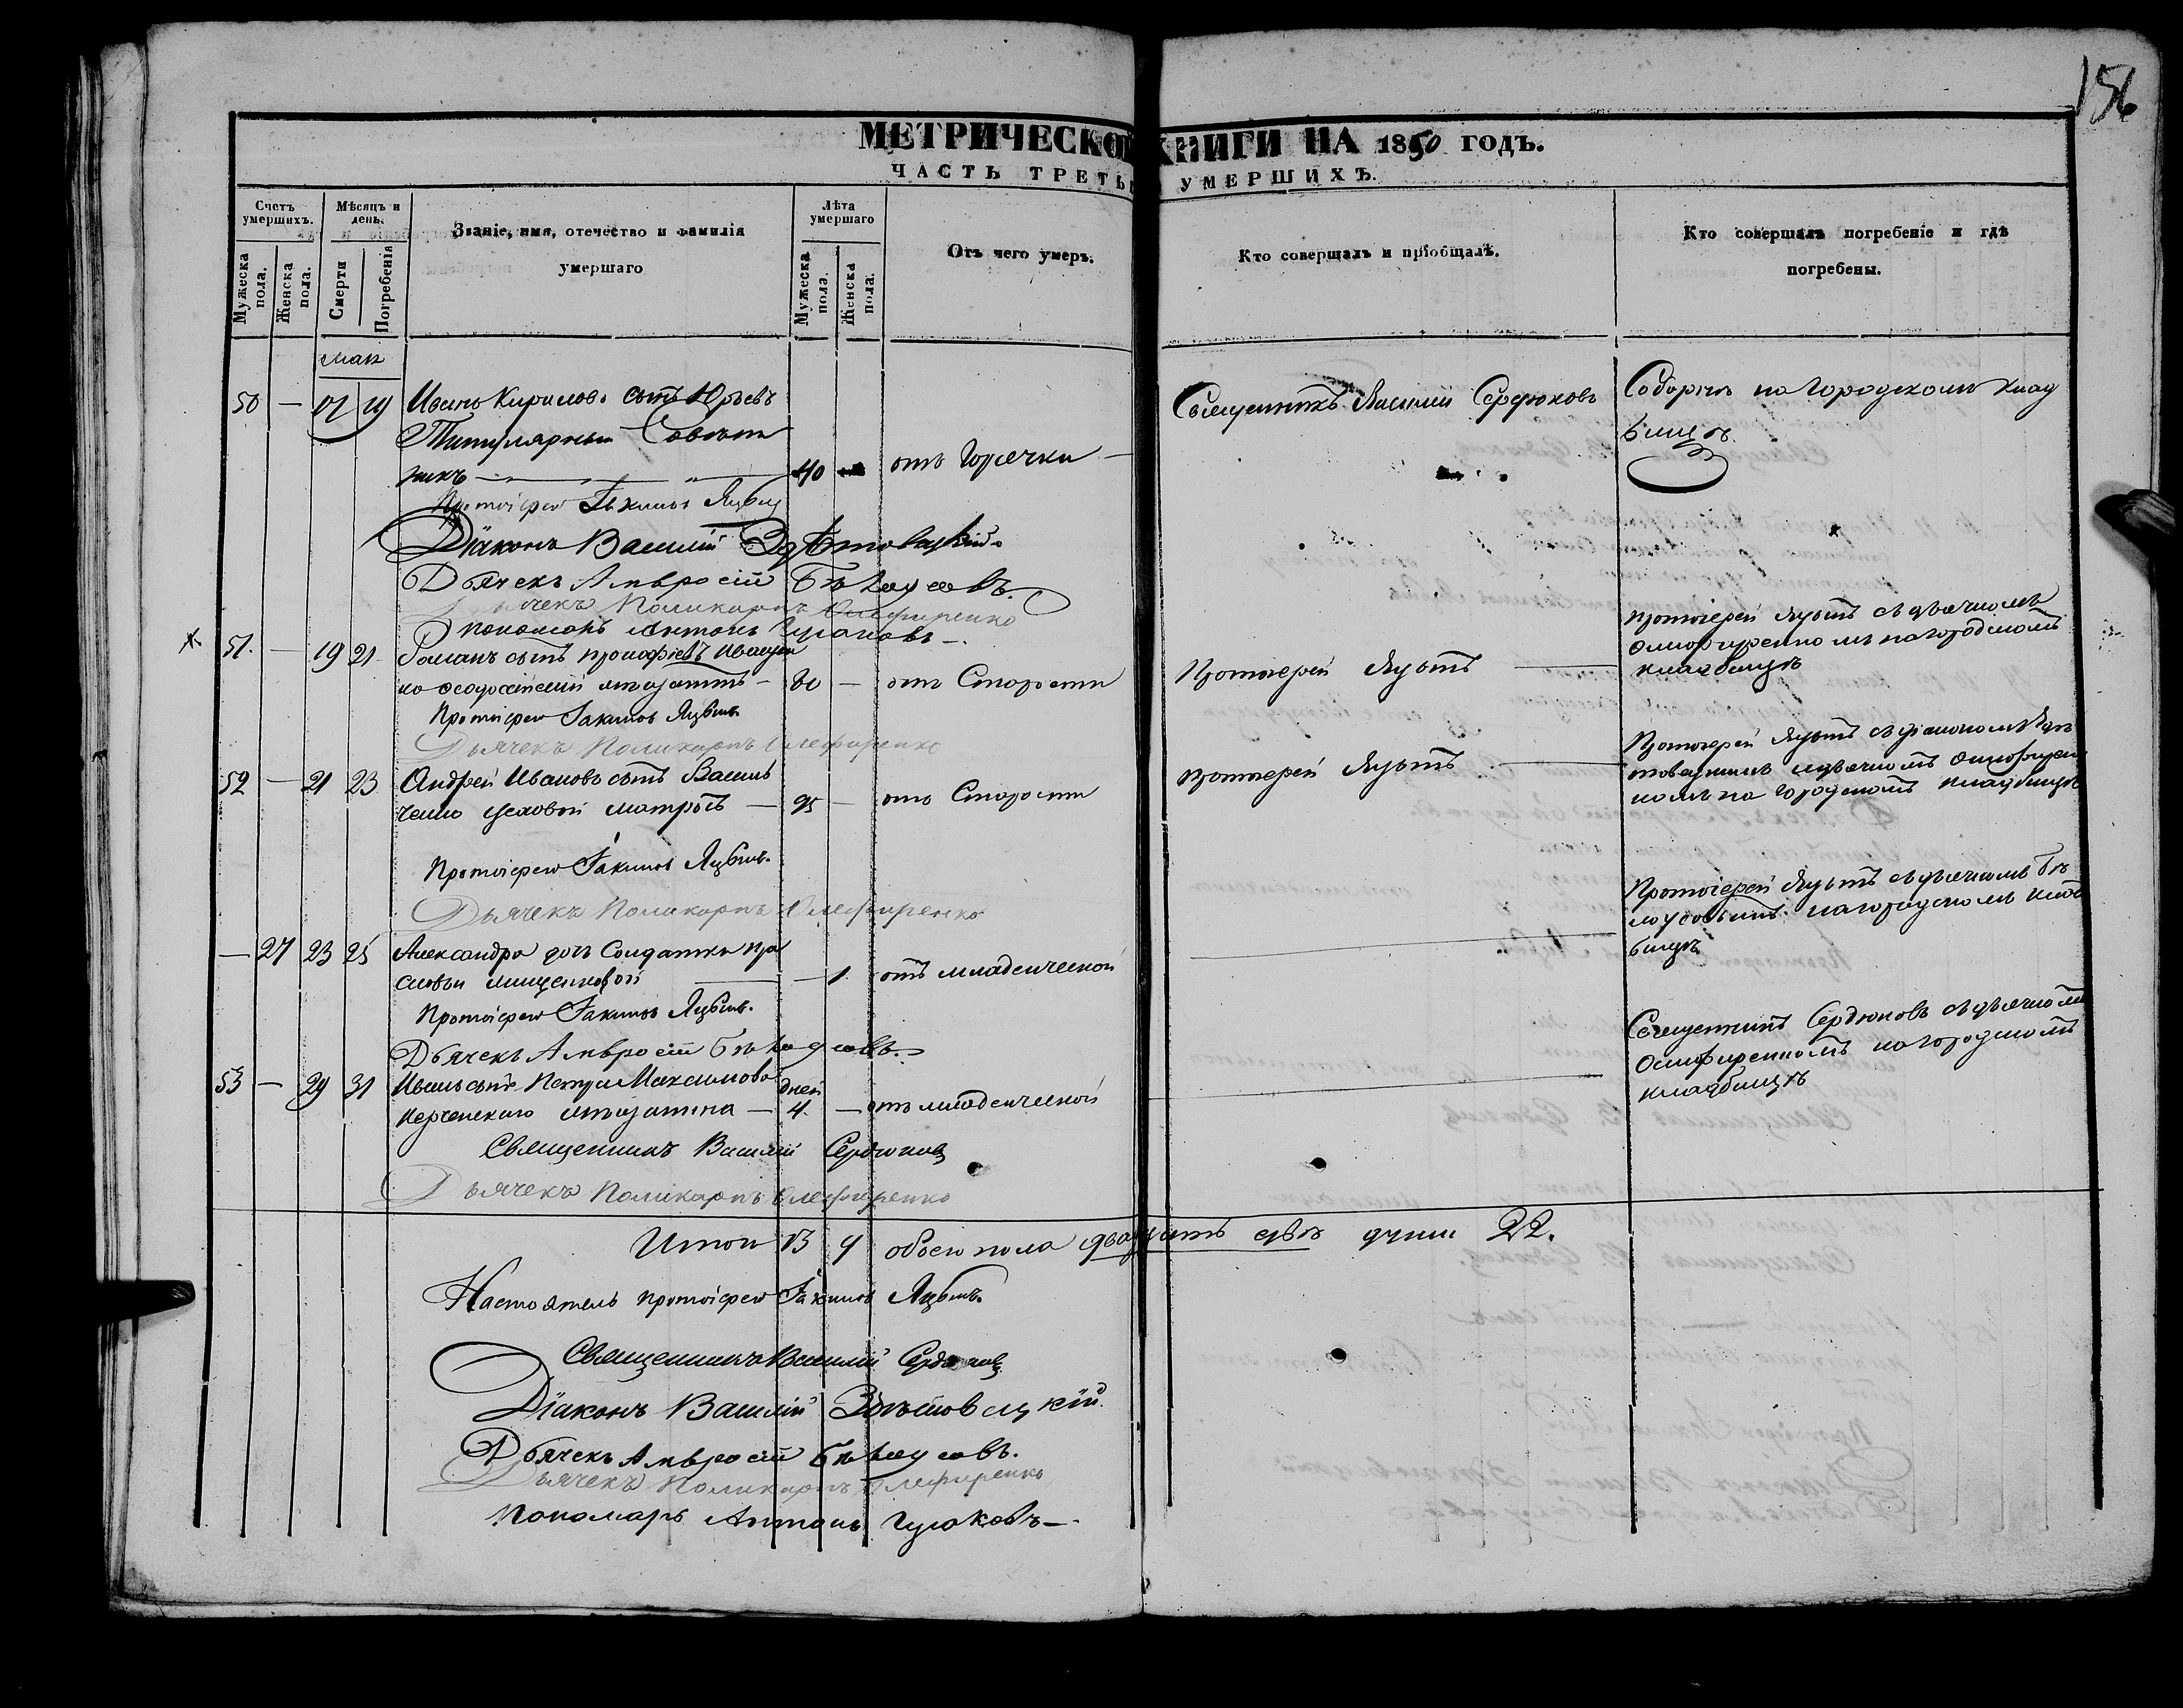 156
МЕТРИЧЕСКОЙ КНИГИ НА 1850 ГОДЪ.
ЧАСТЬ ТРЕТЬЯ УМЕРШИХЪ.
Счетъ умершихъ.
Мѣсяцъ и день.
Званіе, имя, отечество и фамилія умершаго
Лѣта умершаго
Отъ чего умеръ.
Кто совершалъ и пріобщалъ.
Кто совершалъ погребеніе и гдѣ погребены.
Мужеска пола.
Женска пола.
Смерти
Погребенія
Мужеска пола.
Женска пола.
Маія
50 — 17 19 Иванъ Кириловъ сынъ Юрьевъ
Титулярный Совѣт
никъ — 40 — отъ Горячки —
Священникъ Василій Сердюковъ
Соборнѣ на Городскомъ клад
бищѣ
Протоіерей Іакимъ
Діаконъ Василій Здѣтовецкій
Дьячекъ Амвросій Бѣлоусовъ.
Дьячекъ Поликарпъ Олефиренко
Пономарь Антонъ
51. — 19 21 Романъ сынъ Прокофіевъ Иващен
ко Феодосійскій мѣщанинъ — 80 — отъ Старости
Протоіерей
Протоіерей
Олефиренкомъ на городскомъ
кладбищѣ
Протоіерей Іакимъ
Дьячекъ Поликарпъ Олефиренко
52 — 21 23 Андрей Ивановъ сынъ Василь
ченко цеховой матросъ — 95 — отъ Старости
Протоіерей
Протоіерей съ діакономъ Здѣ
товецкимъ и дьячкомъ Олефирен
комъ на Городскомъ кладбищѣ
Протоіерей Іакимъ
Дьячекъ Поликарпъ Олефиренко
— 27 23 25 Александра дочь Солдатки Пра
сковьи Мищенковой — 1. отъ младенческой
Протоіерей съ дьячкомъ Бѣ
лоусовымъ на городскомъ клад
бищѣ
Протоіерей Іакимъ
Дьячекъ Амвросій Бѣлоусовъ.
53 — 29 31 Иванъ сынъ Петра Максимова
Керченскаго мѣщанина — дней 4. — отъ младенческой
Священникъ Сердюковъ съ дьячкомъ
Олефиренкомъ на городскомъ
кладбищѣ
Священникъ Василій Сердюковъ
Дьячекъ Поликарпъ Олефиренко
Итого 13 9 обоего пола двадцать двѣ души 22.
Настоятель протоіерей Іакимъ
Священникъ Василій Сердюковъ
Діаконъ Василій Здѣтовецкій.
Дьячекъ Амвросій Бѣлоусовъ.
Дьячекъ Поликарпъ Олефиренко
Пономарь Антонъ